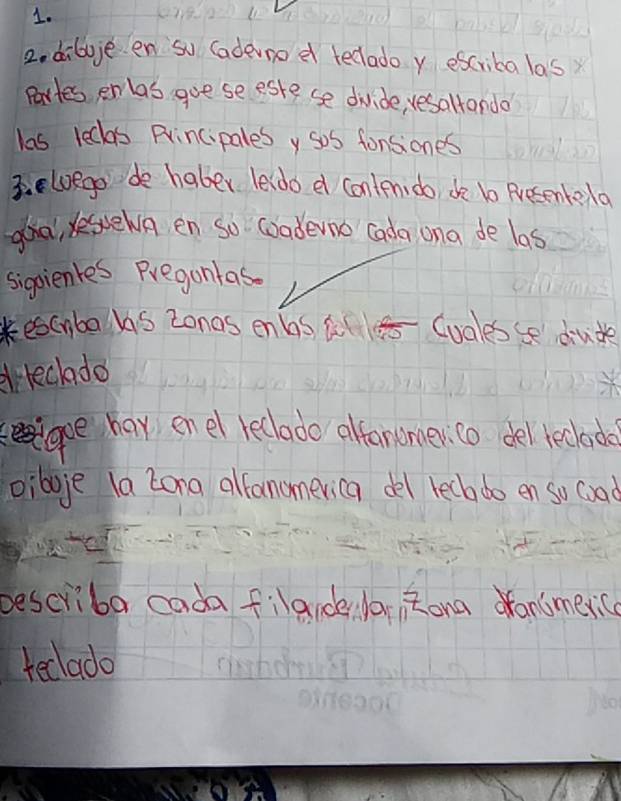 1.
2. dibuje en su caderno el teclado y escriba las
Partes en las que se este se divide, resaltando
las teclas Principales y sus fonsiones
3. luego de haber leido el contenido de la Presente la
guia, resuelva en su coaderno cada una de las
siguientes Preguntas.
* escriba las zonas en las cuales se divide
el teclado *
que hay en el teclado alfanumerico del teclado
Dibuje la zona alfanumerica del teclado en su coad
Describa cada fila de la zona alfanumerico
teclado
Docente